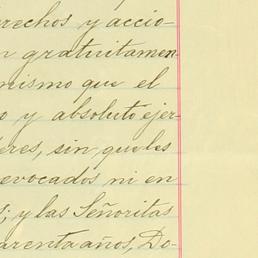 rechos y accio-
n gratuitamen-
mismo que el
o y absoluto ejer-
eres, sin que les
evocados ni en
s; y las Señoritas
arenta años, Do-